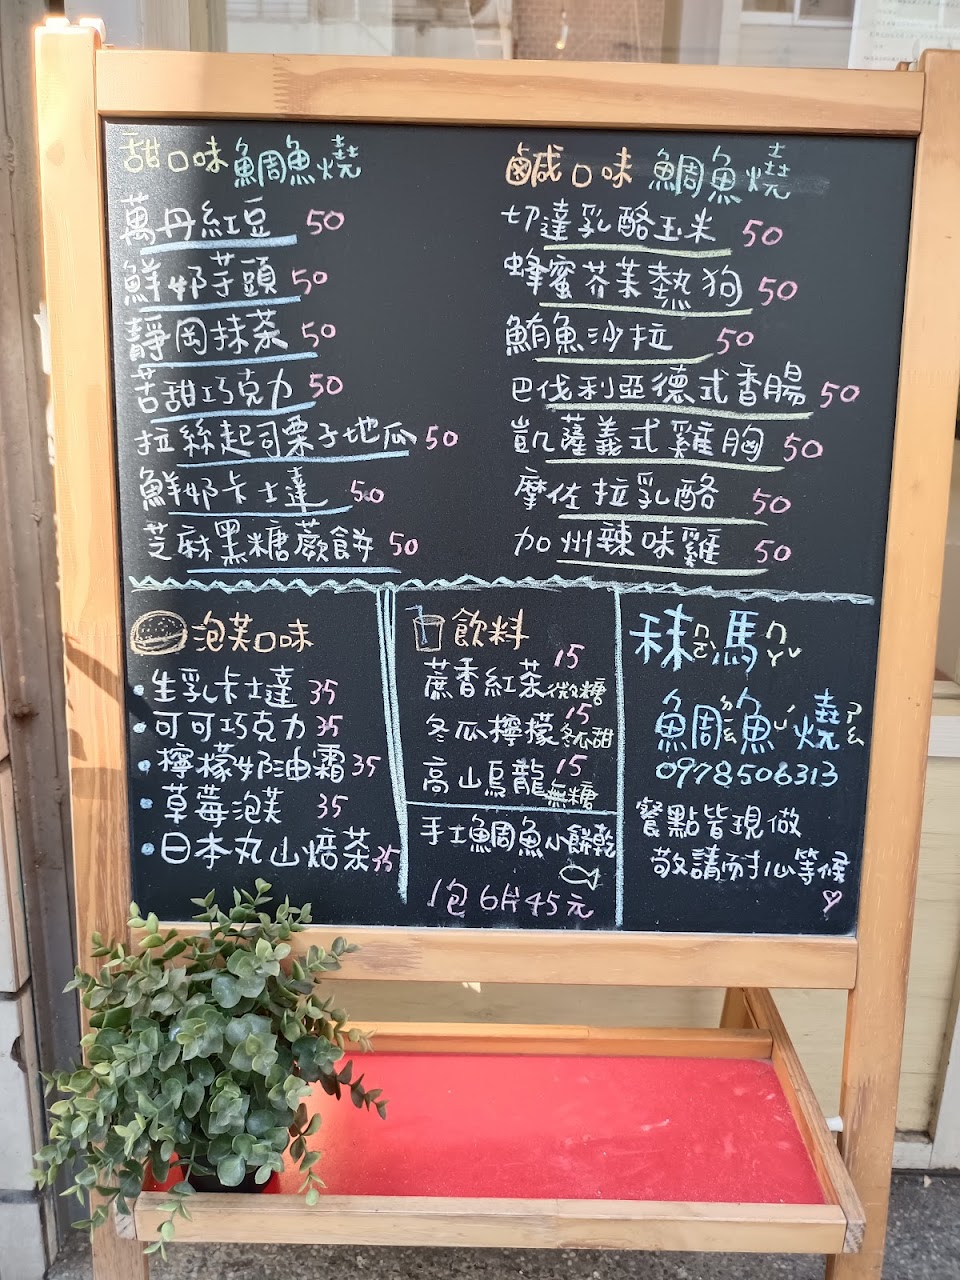 甜口味鯛魚燒
萬丹紅豆 50
鮮奶芋頭 50
靜岡抹茶 50
苦甜巧克力 50
拉絲起司栗子地瓜 50
鮮奶卡士達 50
芝麻黑糖蕨餅 50
鹹口味 鯛魚燒
切達乳酪玉米 50
蜂蜜芥茉熱狗 50
鮪魚沙拉 50
巴伐利亞德式香腸 50
凱薩義式雞胸 50
摩佐拉乳酪 50
加州辣味雞 50
泡芙口味
•生乳卡士達 35
•可可巧克力 35
•檸檬奶油霜 35
•草莓泡芙 35
•日本丸山焙茶 35
飲料
蔗香紅茶 微糖 15
冬瓜檸檬 冬瓜甜 15
高山烏龍 無糖 15
手工鯛魚小餅乾
1包 6片45元
秣馬
鯛魚燒
0978506313
餐點皆現做
敬請耐心等候